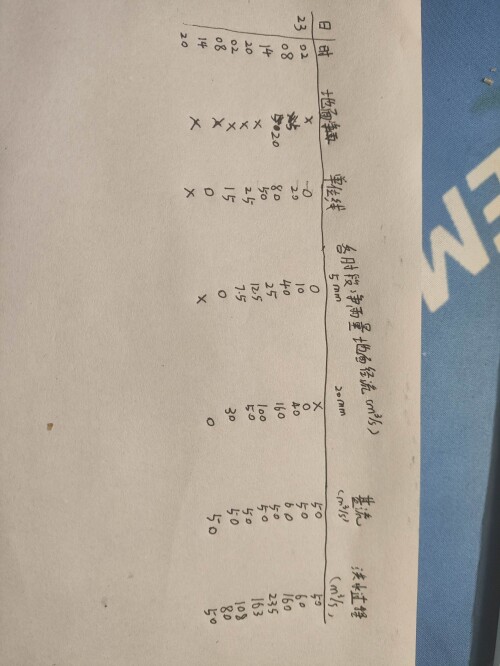 日 时 地面净雨 单位线 各时段净雨量地面径流(m³/s) 基流 洪水过程
5mm 20mm (m³/s) (m³/s)
23 02 x 0 0 X 50 50
08 5 20 10 0 50 60
14 20 80 40 40 60 160
20 x 50 25 160 50 235
02 x 25 12.5 100 50 163
08 x 15 7.5 50 50 108
14 x 0 0 30 50 80
20 x x x 0 50 50
EM